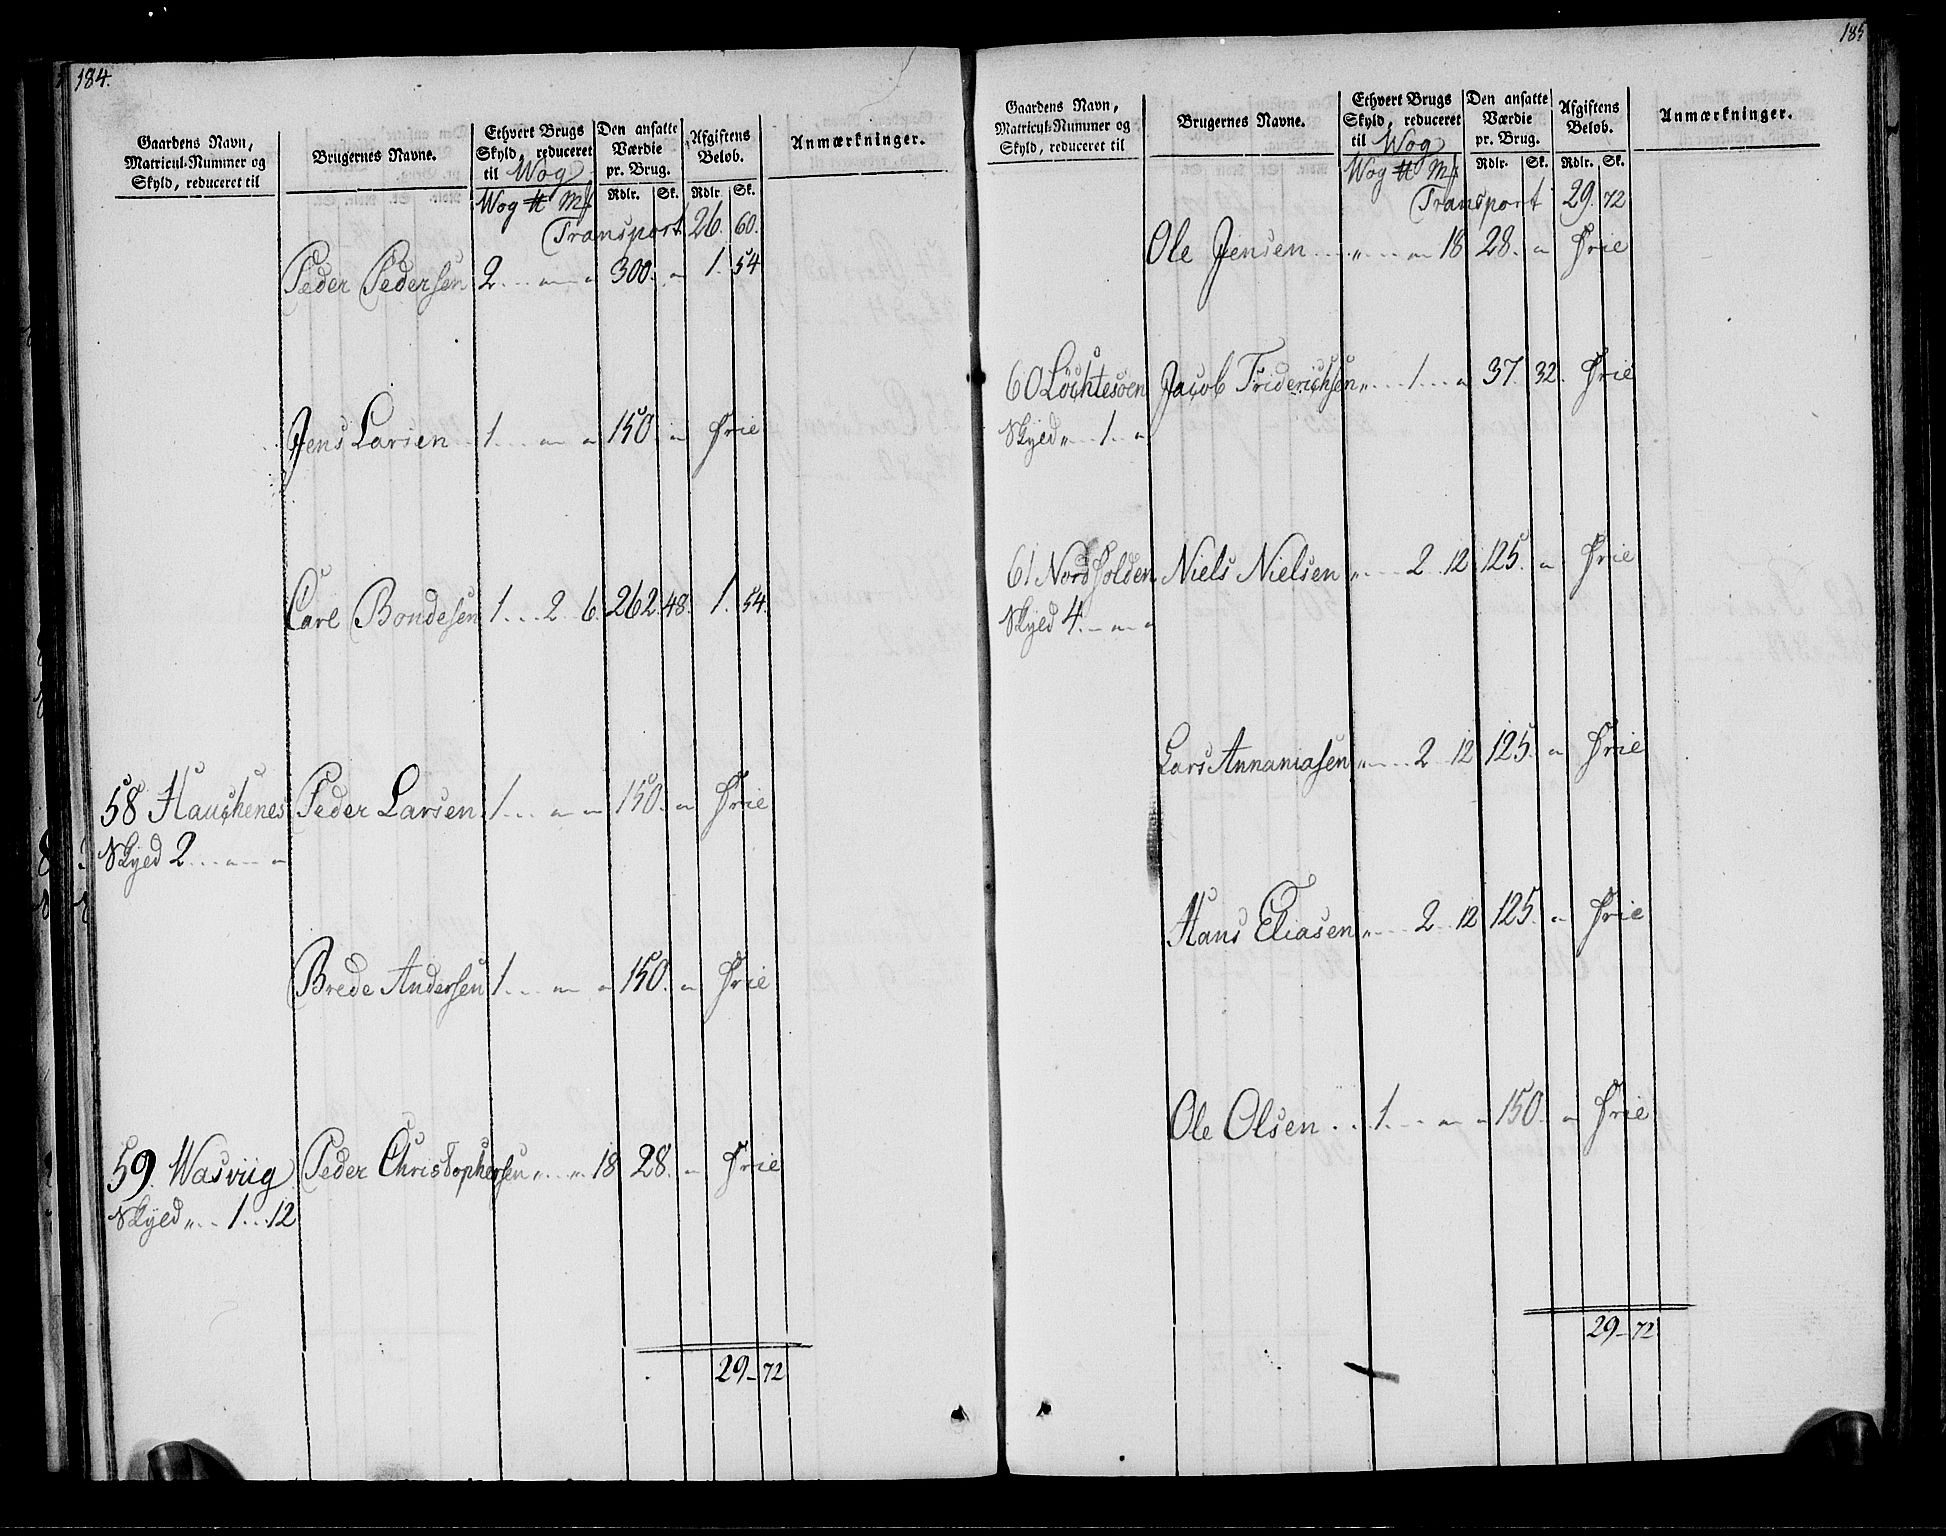 184.
Gaardens Navn, Matricul-Nummer og Skyld, reduceret til
Brugernes Navne.
Ethvert Brugs Skyld, reduceret til Wog
Den ansatte Værdie pr. Brug.
Afgiftens Beløb.
Anmærkninger.
Wog ℔ Mk Rdlr. Sk. Rdlr. Sk.
Transport 26. 60.
Peder Pedersen 2 . . . „ „ 300. „ 1. 54
Jens Larsen 1 . . . „ „ 150 „ Frie
Carl Bondesen 1 . . . 2 6. 262. 48. 1. 54.
58 Hauchenes Peder Larsen 1 . . . „ „ 150. „ Frie
Skyld 2 . . . „ . . „
Brede Andersen 1 . . . „ „ 150. „ Frie
59. Wasviig Peder Christophersen „ . . „ 18 28. „ Frie
Skyld „ . . 1 . . 12
29 – 72
185
Gaardens Navn, Matricul-Nummer og Skyld, reduceret til
Brugernes Navne.
Ethvert Brugs Skyld, reduceret til Wog
Den ansatte Værdie pr. Brug.
Afgiftens Beløb.
Anmærkninger.
Wog ℔ Mk Rdlr. Sk. Rdlr. Sk.
Transport 29. 72
Ole Jensen . . . „ . . . „ 18 28. „ Frie
60 Löchtesöen Jacob Friderichsen „ . . . 1 . . . „ 37. 32. Frie
Skyld „ . . 1 . . „
61 Nordfolden Niels Nielsen „ . . . 2 12 125. „ Frie
Skyld 4. – „ – „
Lars Annaniasen „ . . . 2 12 125. „ Frie
Hans Eliasen „ . . . 2 12 125. „ Frie
Ole Olsen . . 1 . . . „ „ 150. „ Frie
29 – 72